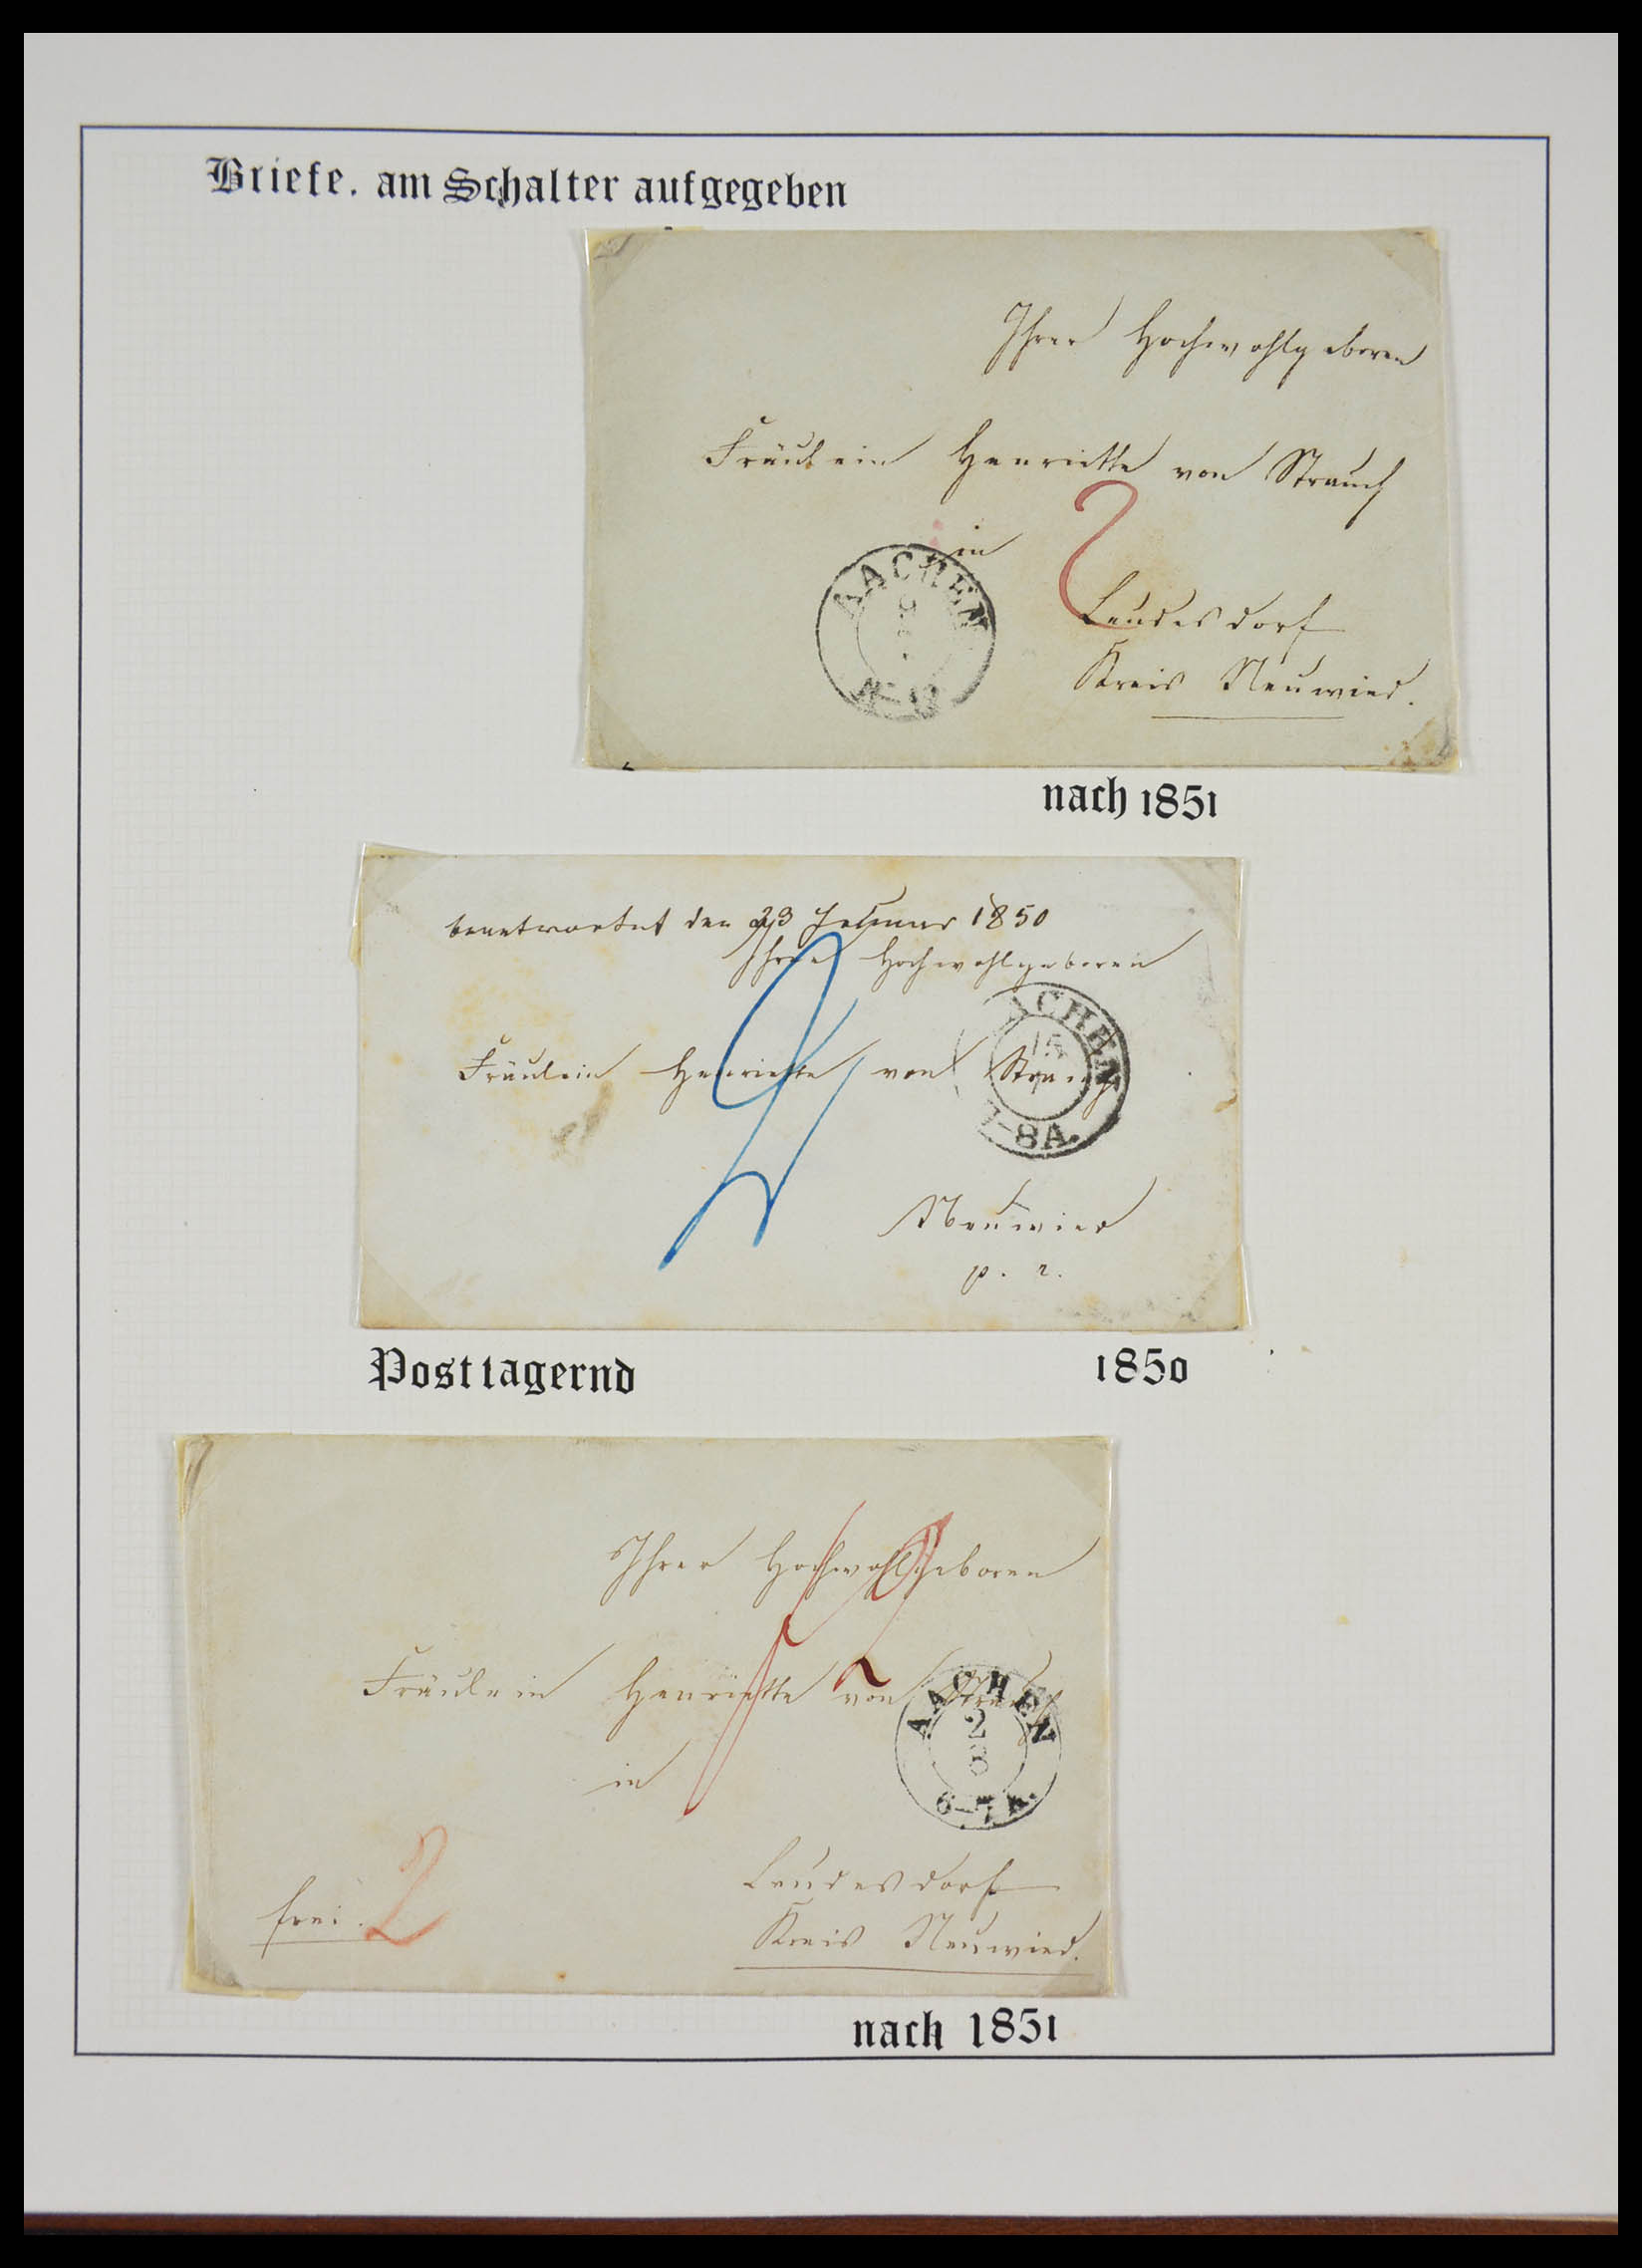 Briefe. am Schalter aufgegeben
Ihrer Hochwohlgeboren
Fräulein Henriette von Strauch
in
2
AACHEN
Leudesdorf
Kreis Neuwied.
nach 1851
beantwortet den 23 Januar 1850
Ihrer Hochwohlgeboren
Fräulein Henriette von Strauch
ACHEN
15
1
7-8A.
Neuwied
p. r.
Postlagernd
1850
Ihrer Hochwohlgeboren
Fräulein Henriette von Strauch
AACHEN
2
8
6-7A.
in
Leudesdorf
frei. 2
Kreis Neuwied.
nach 1851